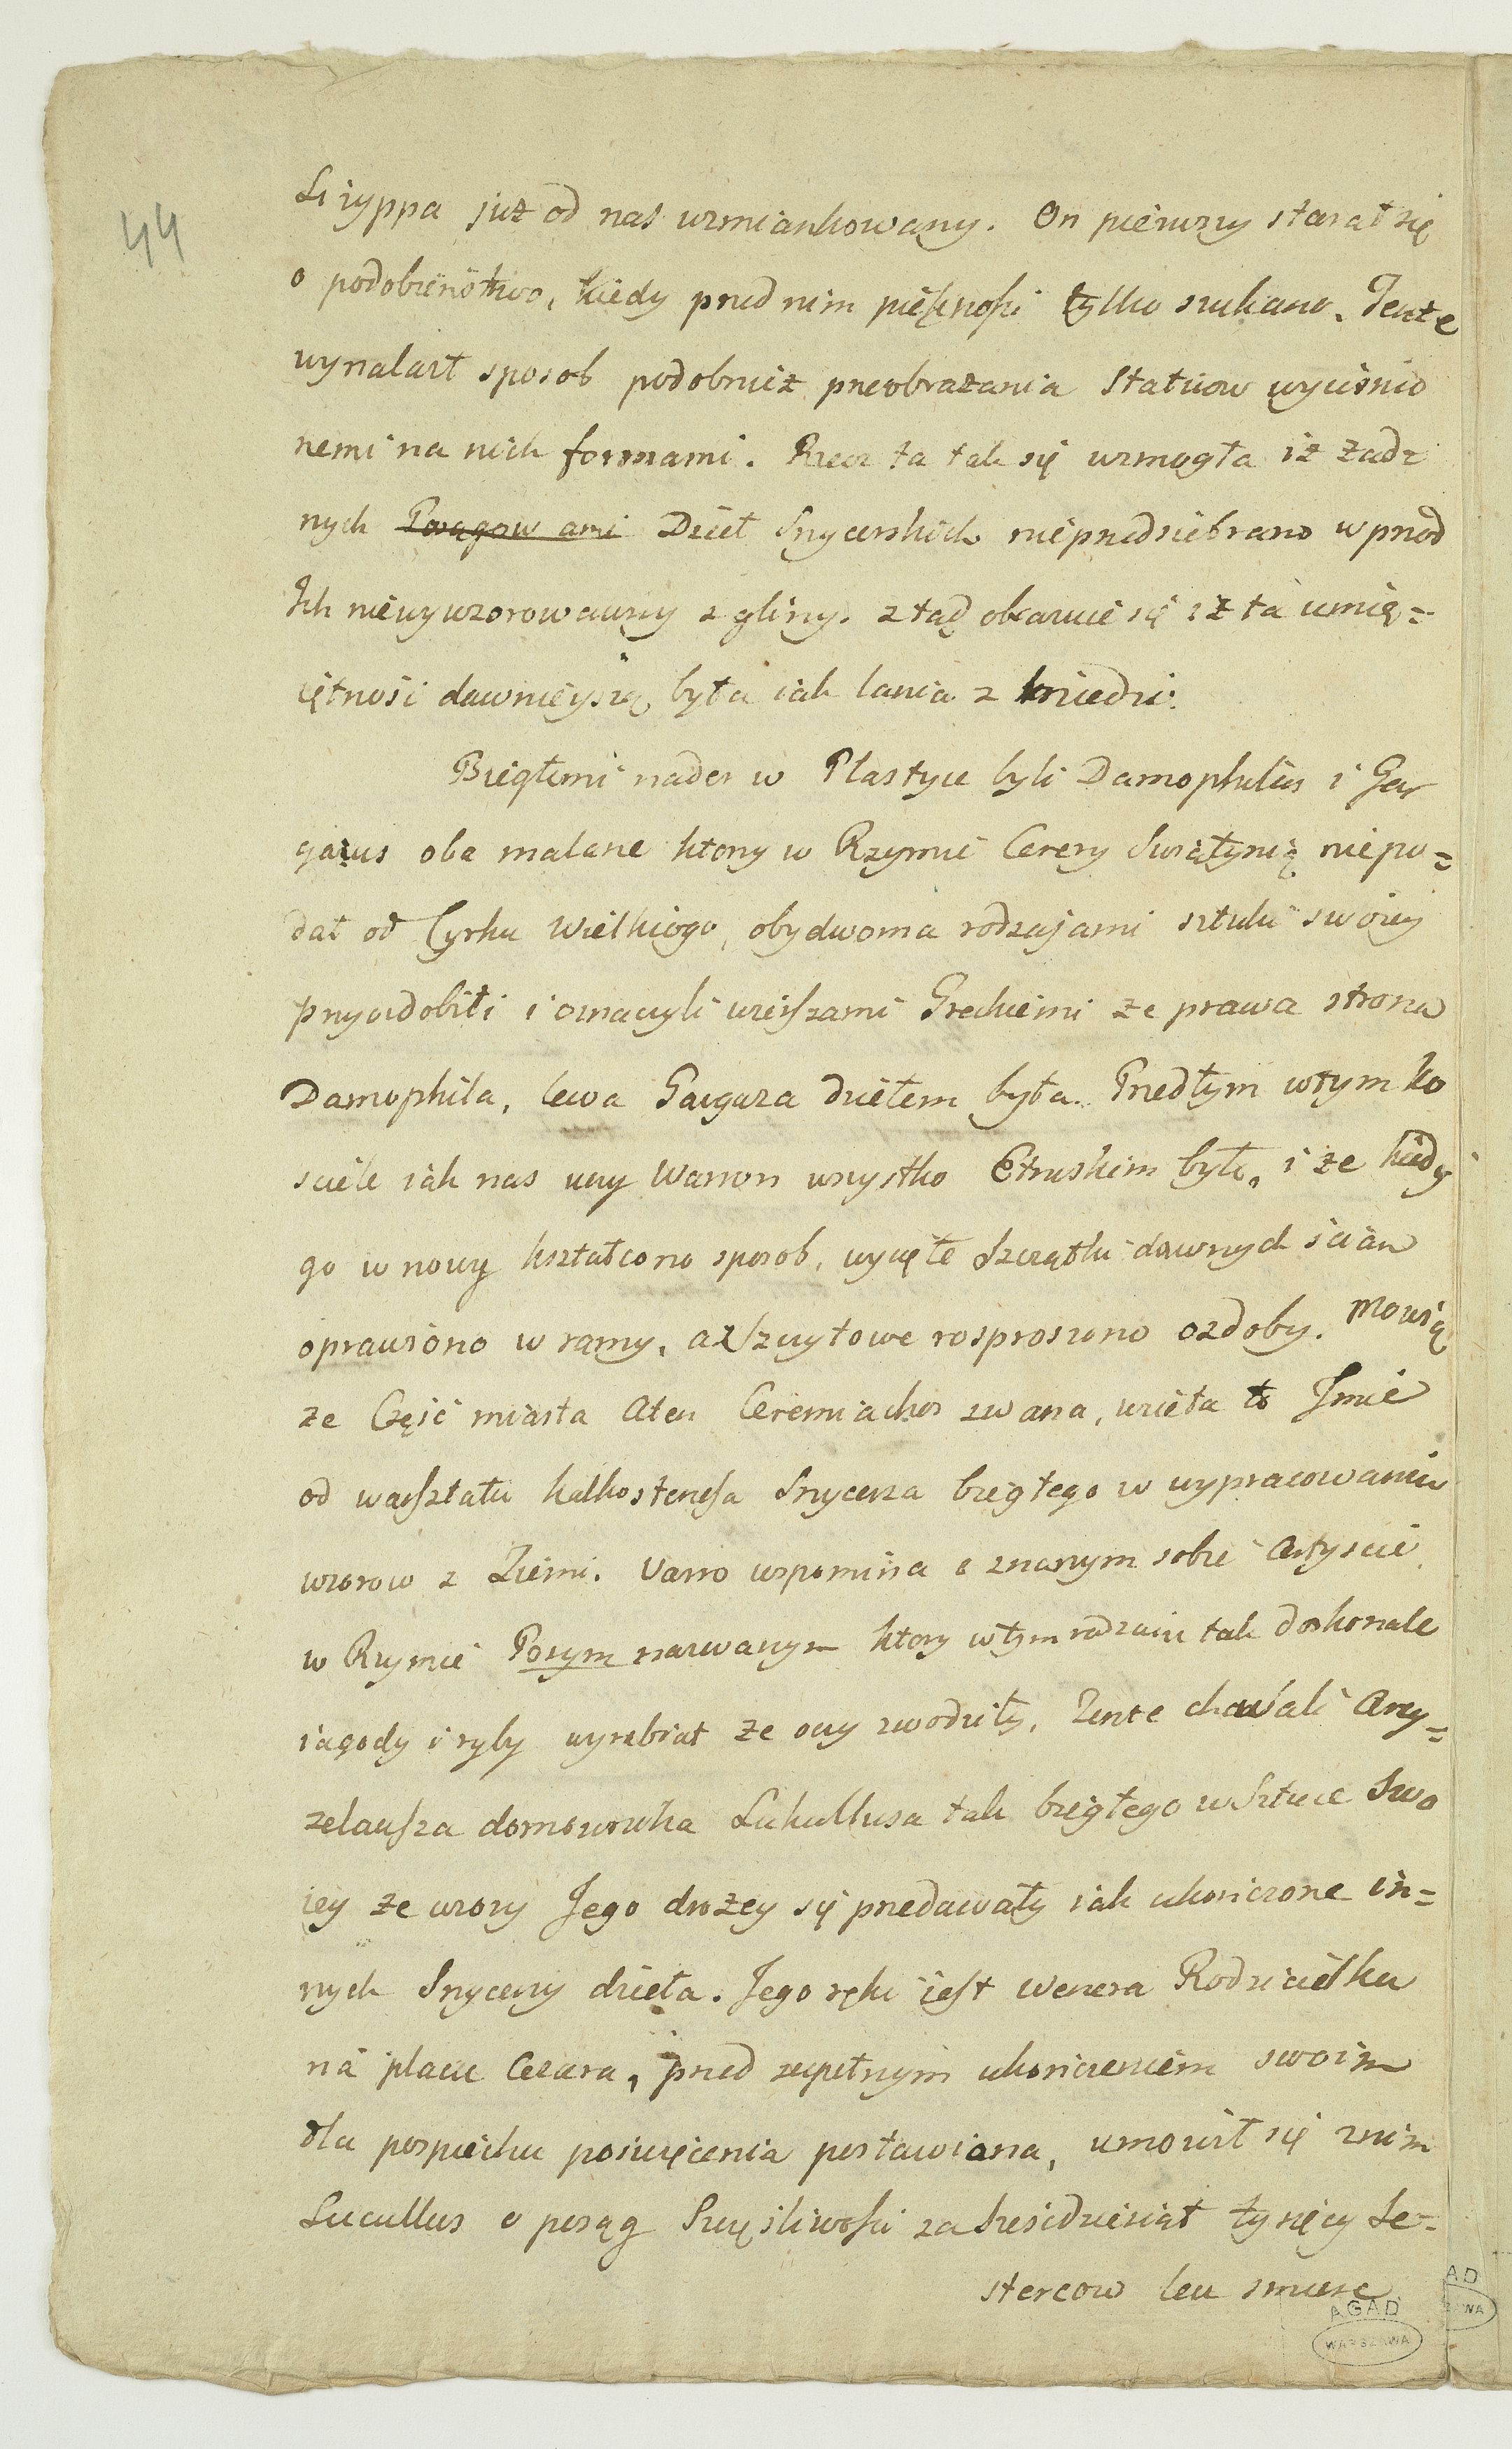 44
Lizyppa już od nas wzmiankowany. On pierwszy starał się
o podobieństwo, kiedy przed nim piękności tylko szukano. Tenże
wynalazł sposob podobnież przeobrażania Statuow wyciśnio
nemi na nich formami. Rzecz ta tak się wzmogła iż żad
nych Posągow ani Dzieł Snycerskich nieprzedsiebrano wprzod
Ich niewywzorowawszy z gliny. ztąd okazuie się iż ta umię=
iętność dawnieyszą była iak lania z kniedzi.
Biegłemi nader w Plastyce byli Damophilus i Gor
gazus oba malarze ktorzy w Rzymie Cerery Swiątynią niepo=
dal od Cyrku Wielkiego, obydwoma rodzajami sztuki swoiey
przyozdobili i oznaczyli wierszami Greckiemi ze prawa strona
Damophila, lewa Gorgaza dziełem była. Przedtym wtym ko
sciele iak nas uczy Warron wszystko Etruskim było, i że kiedy
go w nowy kształcono sposob, wycięte Szczątki dawnych ścian
oprawiono w ramy, a szczytowe rosproszono ozdoby. Mowią
że Część miasta Aten Ceremiachos zwana, wzieła to Imie
od warsztatu Kalkostenesa Snycerza biegłego w wypracowaniu
wzorow z Ziemi. Varro wspomina o znanym sobie Artyscie
w Rzymie Posym nazwanym ktory wtym rodzaiu tak doskonale
iagody i ryby wyrabiał że oczy zwodziły, Tenże chwali Arcy=
zelausza domownika Lukullusa tak biegłego w Sztuce Swo
iey że wzory Jego drożey się przedawały iak ukończone in=
nych Snycerzy dzieła. Jego ręki iest Wenera Rodzicielka
na placu Cezara, przed zupełnym ukończeniem swoim
dla pospiechu poświęcenia postawiona, umowił się znim
Lucullus o posąg Szczęśliwości za Sześćdziesiąt tysięcy Se=
stercow lecz smierc
AGAD
WARSZAWA